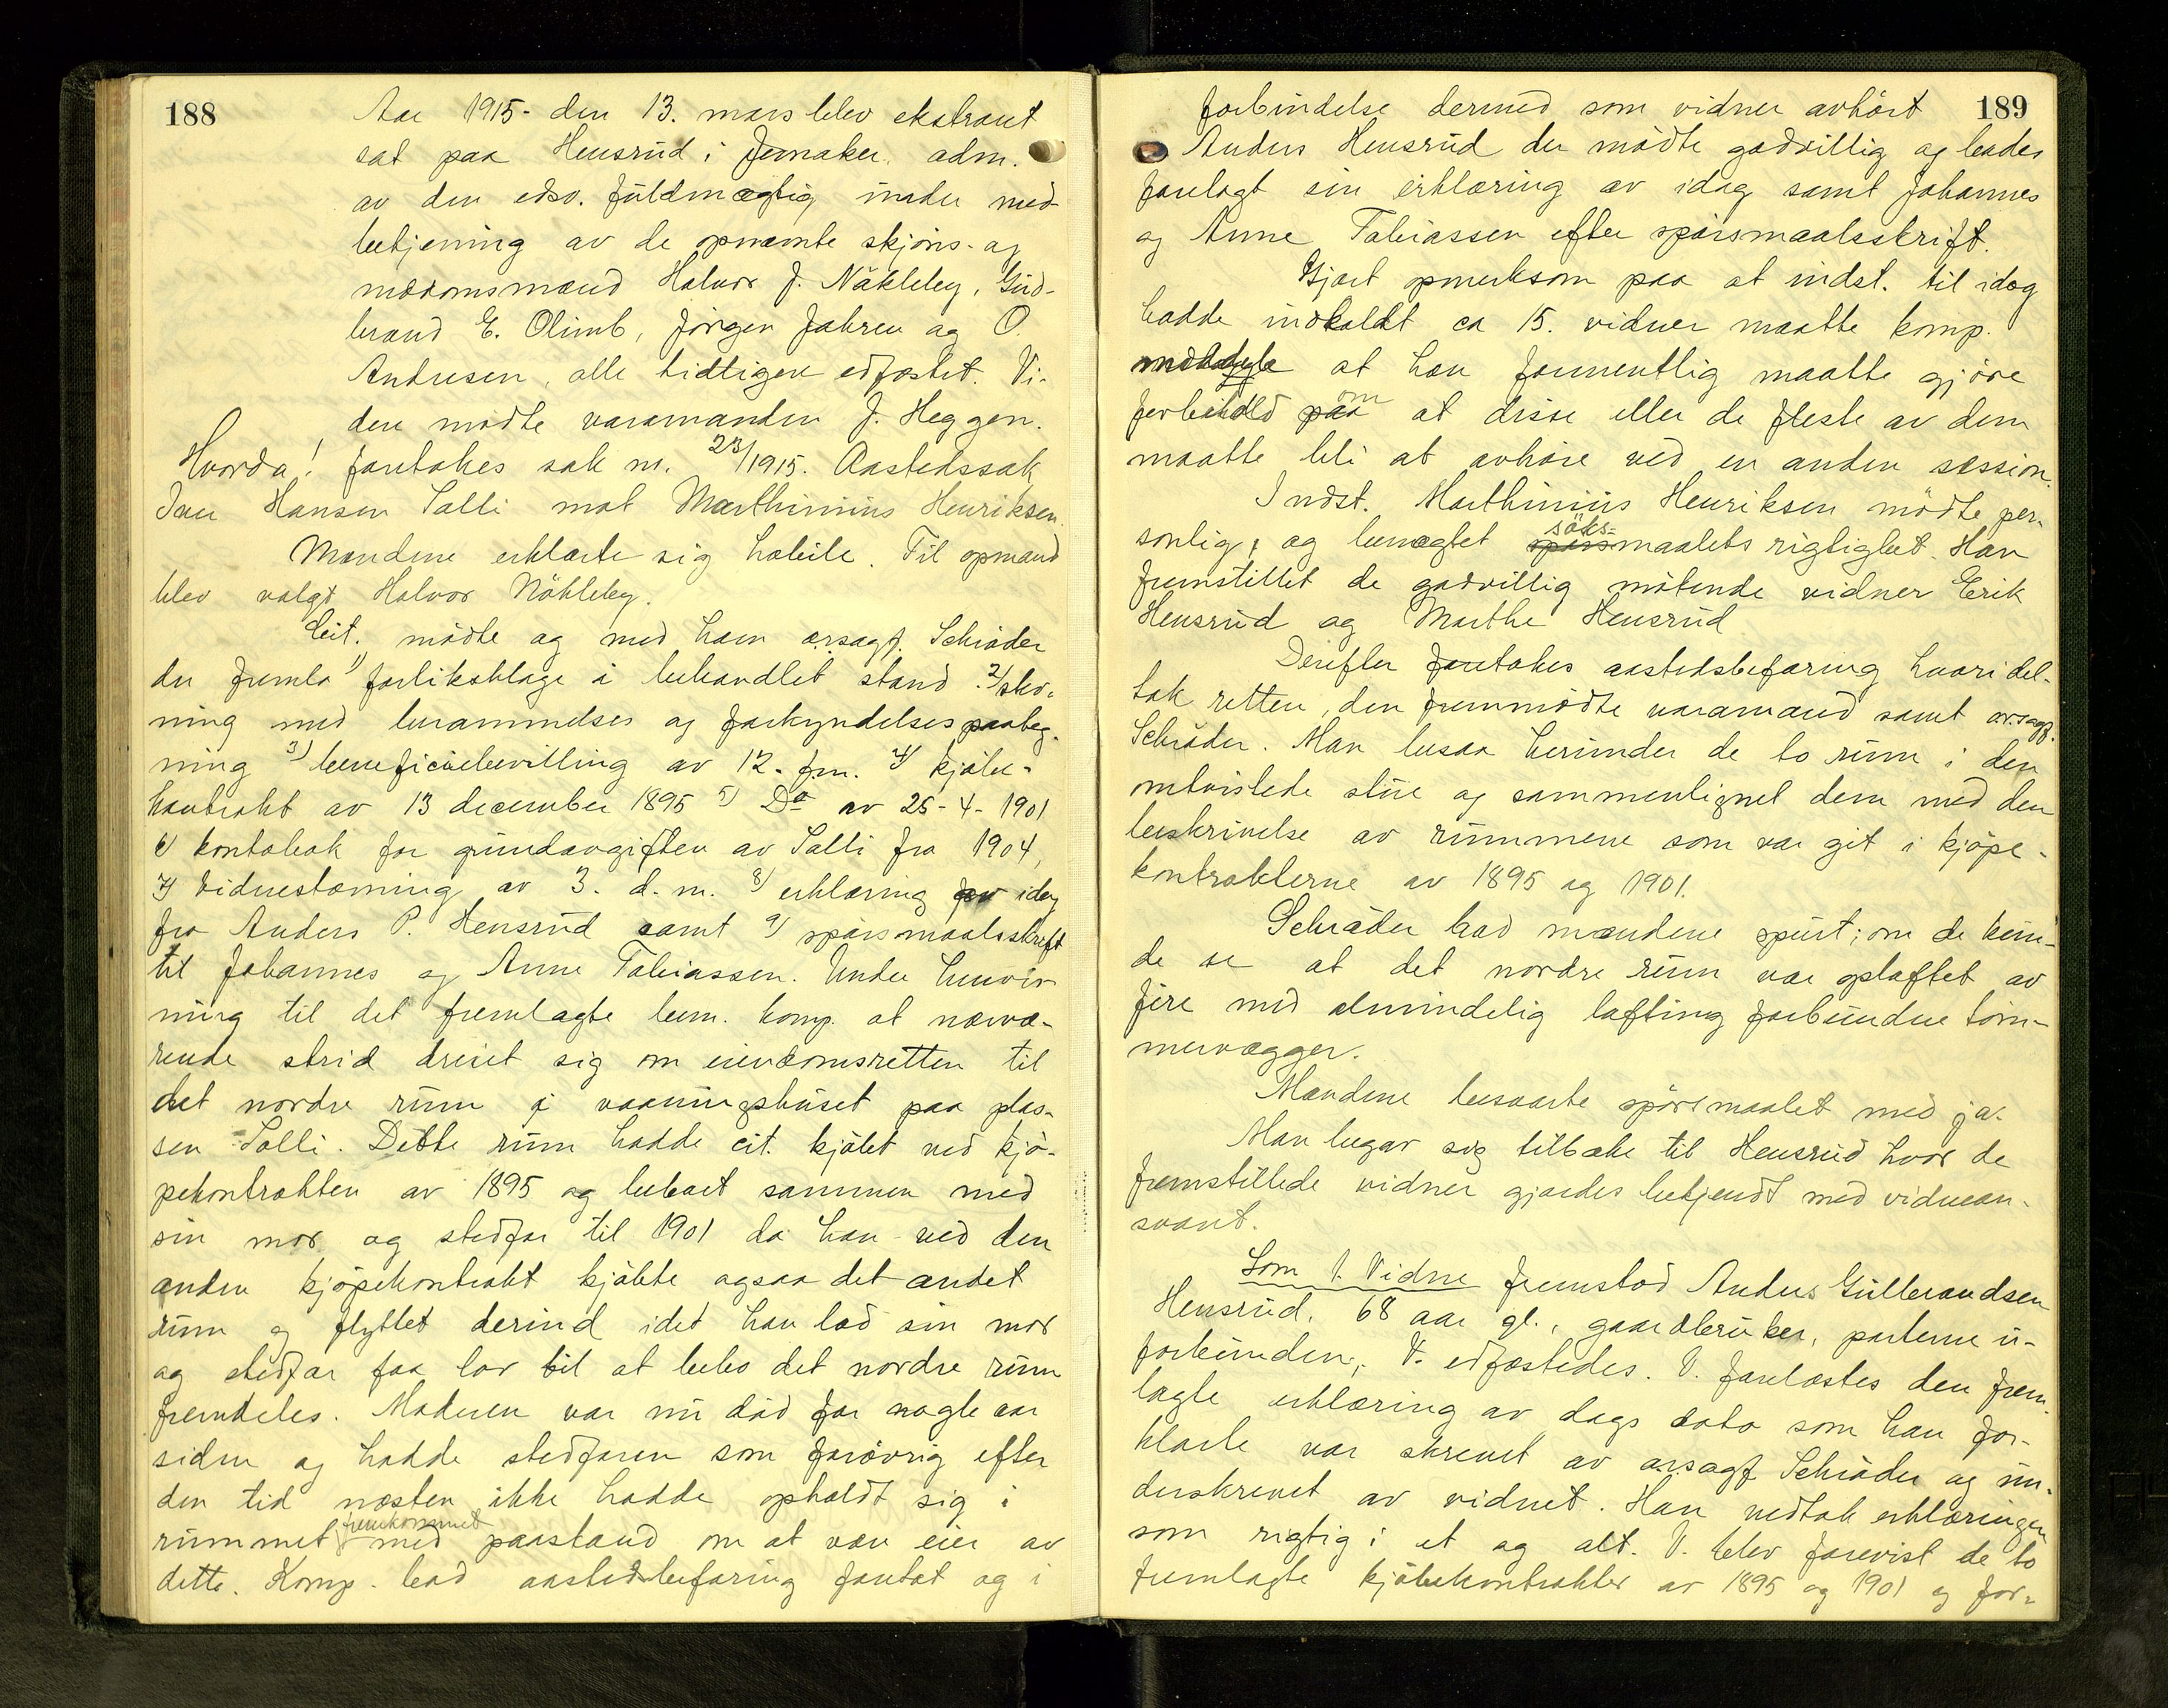 188
Aar 1915- den 13. mars blev ekstraret
sat paa Hensrud i Jevnaker. adm.
av den edsv. fuldmægtig under med-
betjening av de opnævnte skjöns- og
meddomsmænd Halvor J. Nökleby, Gud-
brand E. Olimb, Jörgen Jahren og O.
Andresen, alle tidligere edfæstet. Vi-
dere mödte varamanden J. Heggen.
Hvorda! foretokes sak nr. 23/1915. Aastedssak
Jver Hansen Solli mot Marthinius Henriksen.
Mændene erklærte sig habile. Til opmand
blev valgt Halvor Nökleby.
Cit. mödte og med ham o.r.sagf. Schröder
der fremla 1) forliksklage i behandlet stand. 2) stev-
ning med berammelses og forkyndelsespaateg-
ning 3) beneficiebevilling av 12. f.m. 4) kjöbe-
kontrakt av 13 december 1895 5) Do av 25-4-1901
6) kontobok for grundavgiften av Solli fra 1904,
7) Vidnestævning av 3. d. m. 8) erklæring av idag
fra Anders P. Hensrud samt 9) spörsmaalsskrift
til Johannes og Anne Tobiassen. Under henvis-
ning til det fremlagte bem. komp. at nærvæ-
rende strid dreiet sig om eiendomsretten til
det nordre rum i vaaningshuset paa plas-
sen Solli. Dette rum hadde cit. kjöbt ved kjö-
pekontrakten av 1895 og beboet sammen med
sin mor og stedfar til 1901 da han ved den
anden kjöpekontrakt kjöbte ogsaa det andet
rum og flyttet derind idet han lod sin mor
og stedfar faa lov til at bebo det nordre rum
fremdeles. Moderen var nu död for nogle aar
siden og hadde stedfaren som forövrig efter
den tid næsten ikke hadde opholdt sig i
rummet fremkommet med paastand om at være eier av
dette. Komp. bad aastedsbefaring foretat og i
189
forbindelse dermed som vidner avhört
Anders Hensrud der mödte godvillig og bades
forelagt sin erklæring av idag samt Johannes
og Anne Tobiassen efter spörsmaalsskrift.
Gjort opmerksom paa at indst. til idag
hadde indkaldt ca 15. vidner maatte komp.
at han formentlig maatte gjöre
forbehold paa om at disse eller de fleste av dem
maatte bli at avhöre ved en anden session.
Indst. Marthinius Henriksen mödte per-
sonlig, og benegtet spörs söks-maalets rigtighet. Han
fremstillet de godvillig mötende vidner Erik
Hensrud og Marthe Hensrud
Derefter foretokes aastedsbefaring hvori del-
tok retten, den fremmödte varamand samt o.r.sagf.
Schröder. Man besaa herunder de to rum i den
omtvistede stue og sammenlignet dem med den
beskrivelse av rummene som var git i kjöpe-
kontrakterne av 1895 og 1901.
Schröder bad mændene spurt; om de kun-
de se at det nordre rum var oplaftet av
fire med almindelig lafting forbundne töm-
mervægger.
Mændene besvarte spörsmaalet med ja.
Man begav sig tilbake til Hensrud hvor de
fremstillede vidner gjordes bekjendt med vidnean-
svaret.
Som 1. Vidne fremstod Anders Gulbrandsen
Hensrud, 68 aar gl., gaardbruker, parterne u-
forbunden, V. edfæstedes. V. forelæstes den frem-
lagte erklæring av dags dato som han for-
klarte var skrevet av o.r.sagf. Schröder og un-
derskrevet av vidnet. Han vedtok erklæringen
som rigtig i et og alt. V. blev forevist de to
fremlagte kjöbekontrakter av 1895 og 1901 og for-